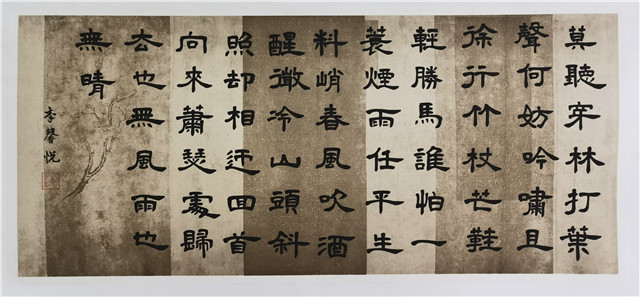 莫聽穿林打葉
聲何妨吟嘯且
徐行竹杖芒鞋
輕勝馬誰怕一
蓑煙雨任平生
料峭春風吹酒
醒微冷山頭斜
照却相迎回首
向來蕭瑟處歸
去也無風雨也
無晴
李馨悅